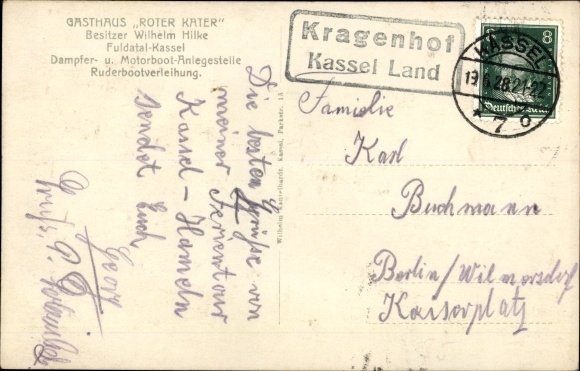 GASTHAUS „ROTER KATER"
Besitzer Wilhelm Hilke
Fuldatal-Kassel
Dampfer- u. Motorboot-Anlegestelle
Ruderbootverleihung.
Kragenhof
Kassel Land
8
Deutsches Reich
KASSEL
19.6.28.21-22
* 7 o
Die besten Grüße von
meiner Ferientour
Kassel - Hameln
sendet Euch
Georg
Wilhelm Kanzelhardt, Kassel, Parkstr. 16
Familie
Karl
Buchmann
Berlin/Wilmersdorf
Kaiserplatz